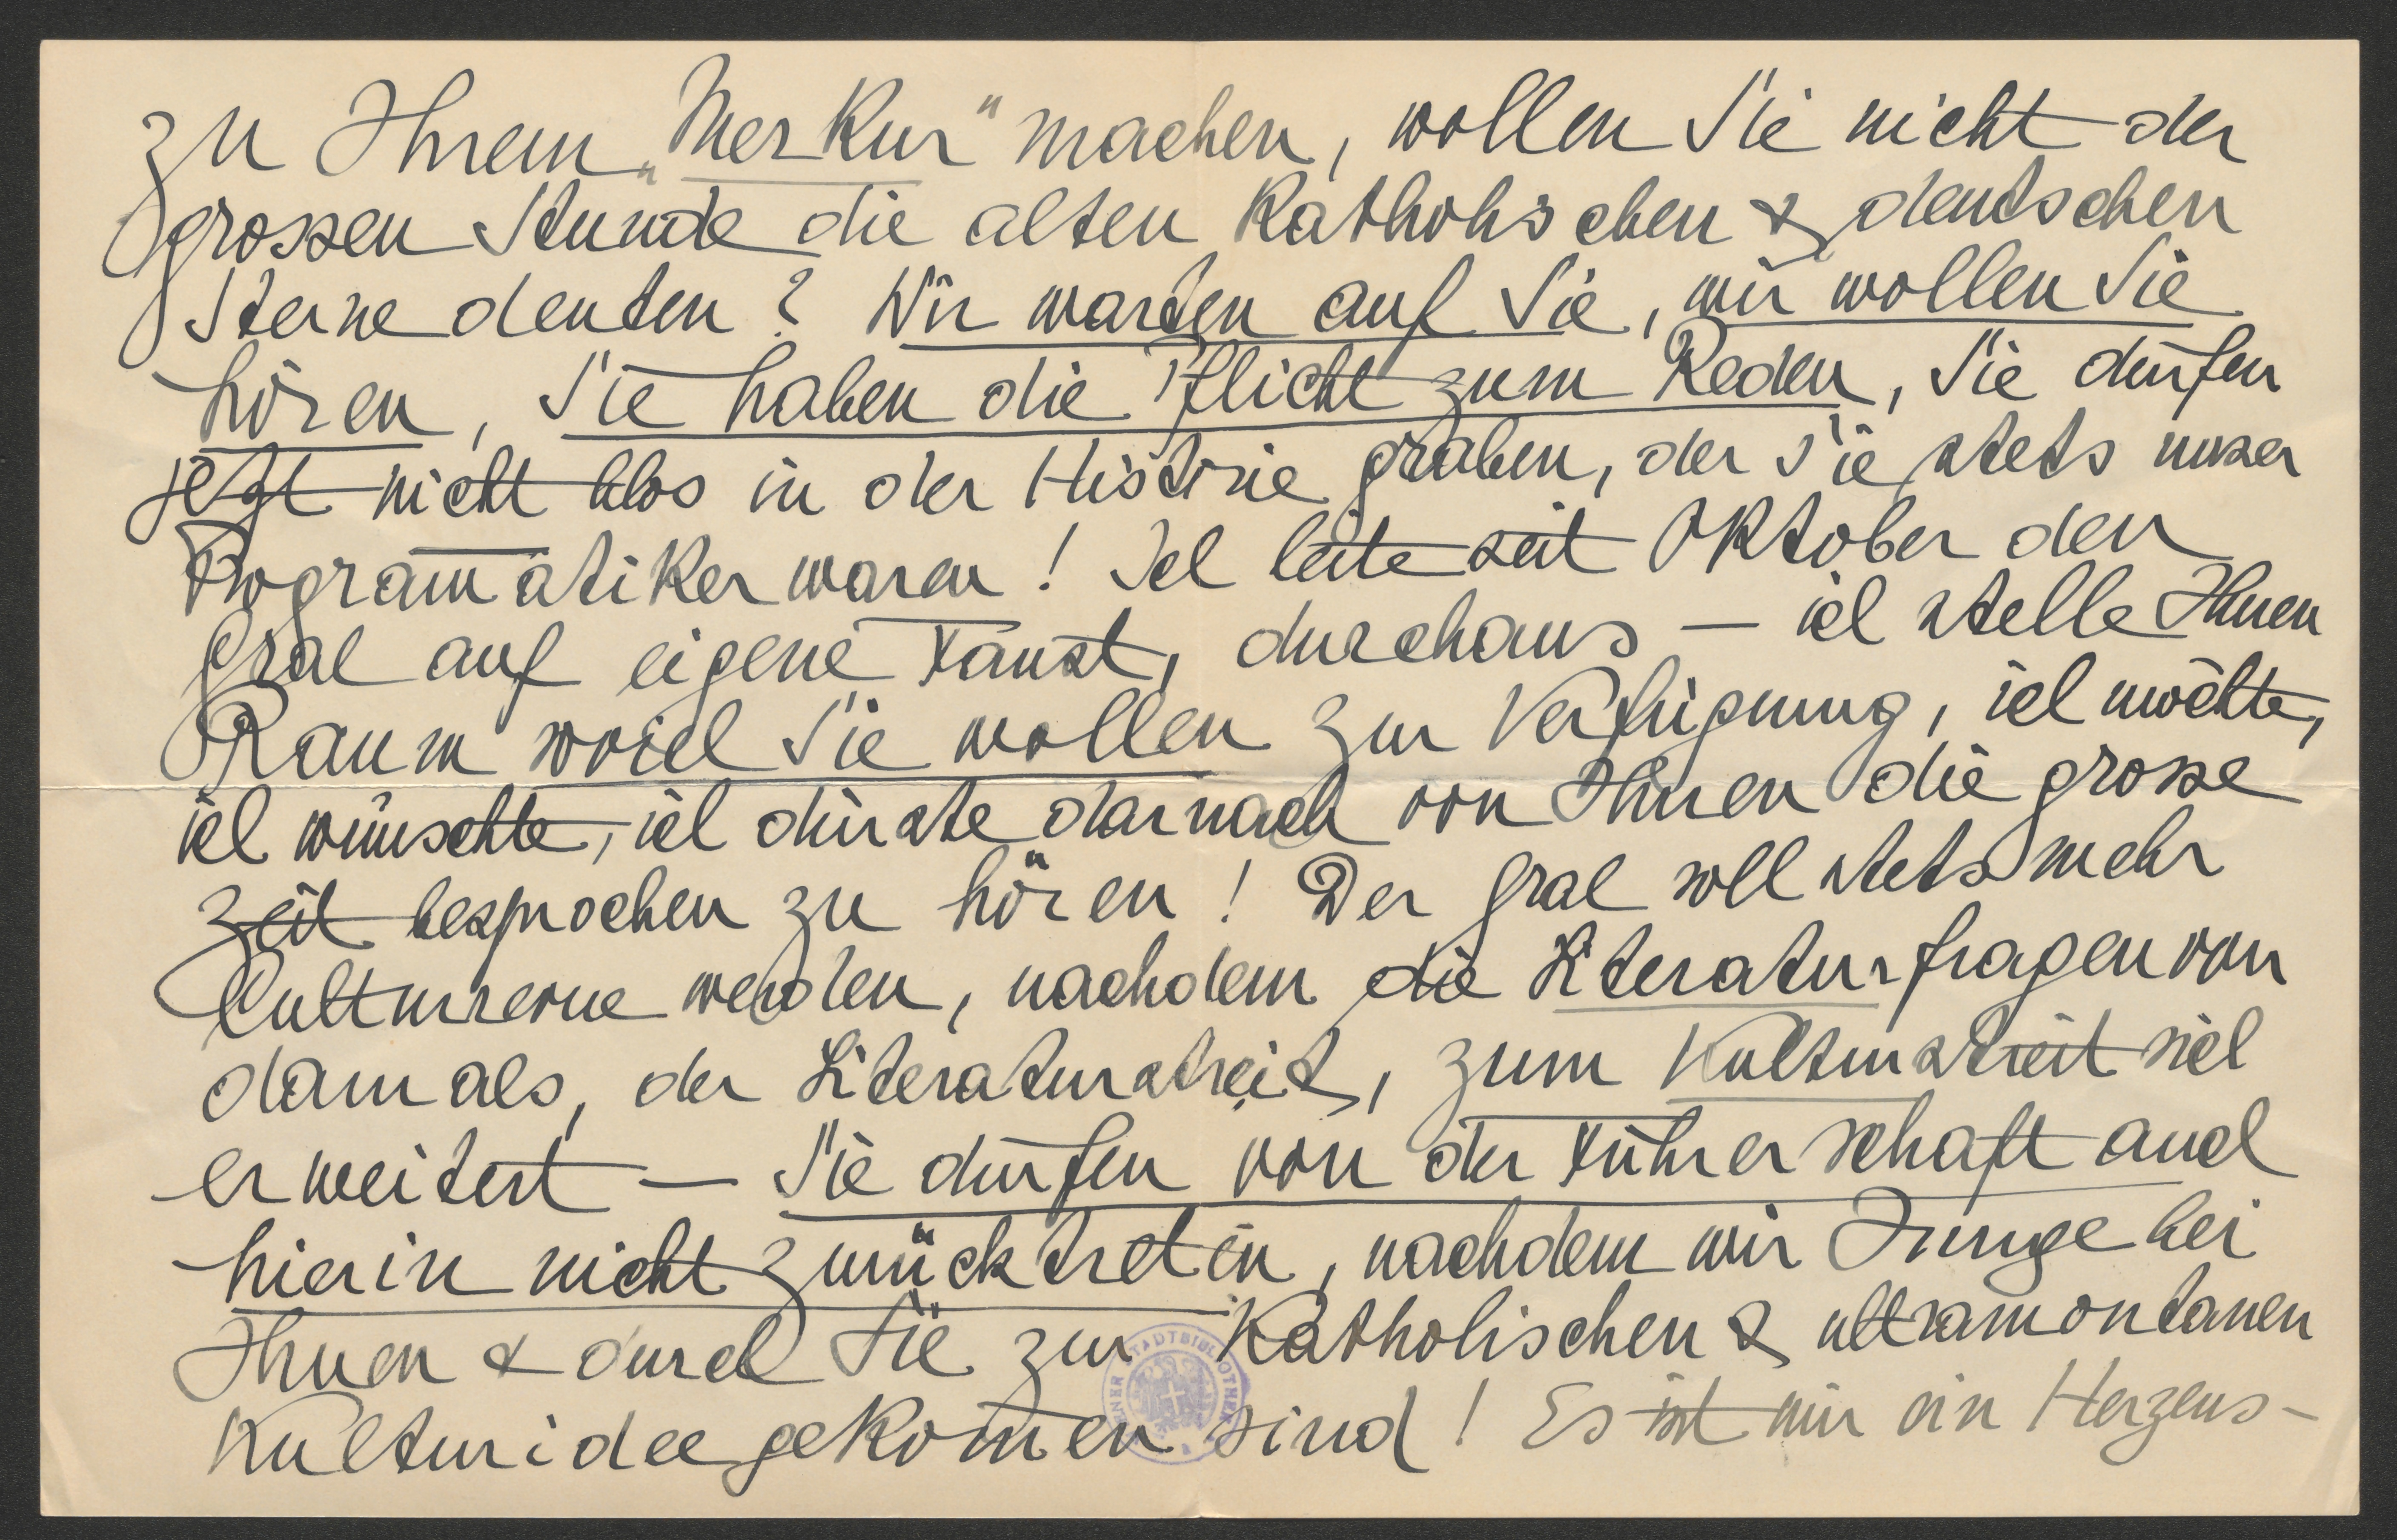 zu Ihrem „Merkur" machen, wollen Sie nicht der
grossen Stunde die alten Katholischen & deutschen
Sterne deuten? Wir warten auf Sie, wir wollen Sie
hören, Sie haben die Pflicht zum Reden, Sie dürfen
jetzt nicht blos in der Historie graben, der Sie stets unser
Program̅atiker waren! Ich leite seit Oktober den
Gral auf eigene Faust, durchaus – ich stelle Ihnen
Raum soviel Sie wollen zur Verfügung, ich möchte,
ich wünschte, ich dürste darnach von Ihnen die grosse
Zeit besprochen zu hören! Der Gral soll stets mehr
Culturrevue werden, nachdem die Literaturfragen von
damals, der Literaturstreit, zum Kulturstreit sich
erweitert – Sie dürfen von der Führerschaft auch
hierin nicht zurücktreten, nachdem wir Junge bei
Ihnen & durch Sie zur Katholischen & ultramontanen
Kulturidee gekom̅en sind! Es ist mir ein Herzens-
STADTBIBLIOTHEK